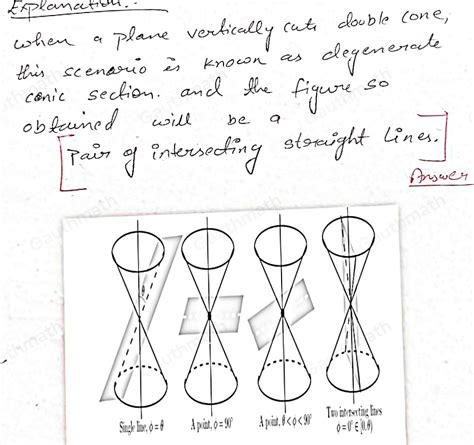 Explanation:
when a plane vertically cuts double cone,
this scenario is known as degenerate
conic section. and the figure so
obtained will be a
[Pair of intersecting straight Lines.]
Answer
Single line, ϕ = θ
A point, ϕ = 90°
A point, θ < ϕ < 90°
Two intersecting lines
ϕ = 0° ∈ [0,θ)